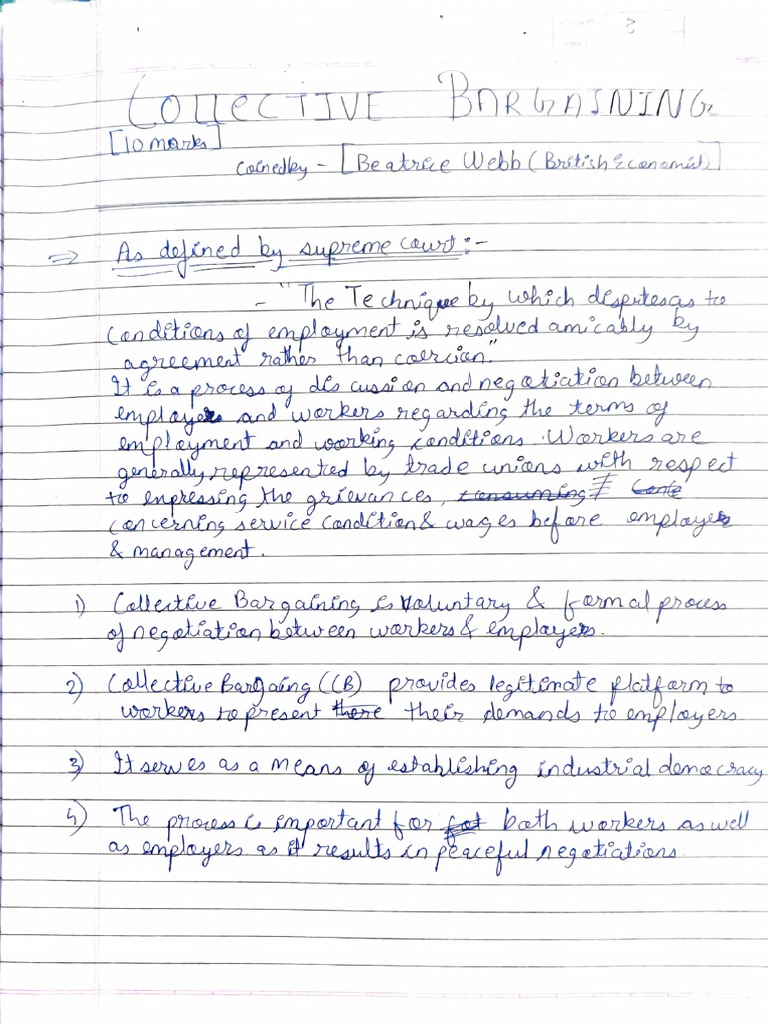 3
COLLECTIVE BARGAINING
[10 marks]
Coinedby - [Beatrice Webb (British Economist)]
⇒ As defined by supreme court :-
- "The Technique by which disputes as to
conditions of employment is resolved amicably by
agreement rather than coercion."
It is a process of discussion and negotiation between
employers and workers regarding the terms of
employment and working conditions. Workers are
generally represented by trade unions with respect
to expressing the grievances, consuming
concerning service condition & wages before employers
& management.
1) Collective Bargaining is Voluntary & formal process
of negotiation between workers & employers.
2) Collective Bargaing (CB) provides legitimate platform to
workers to present there their demands to employers
3) It serves as a means of establishing industrial democracy
4) The process is important for for both workers as well
as employers as it results in peaceful negotiations.